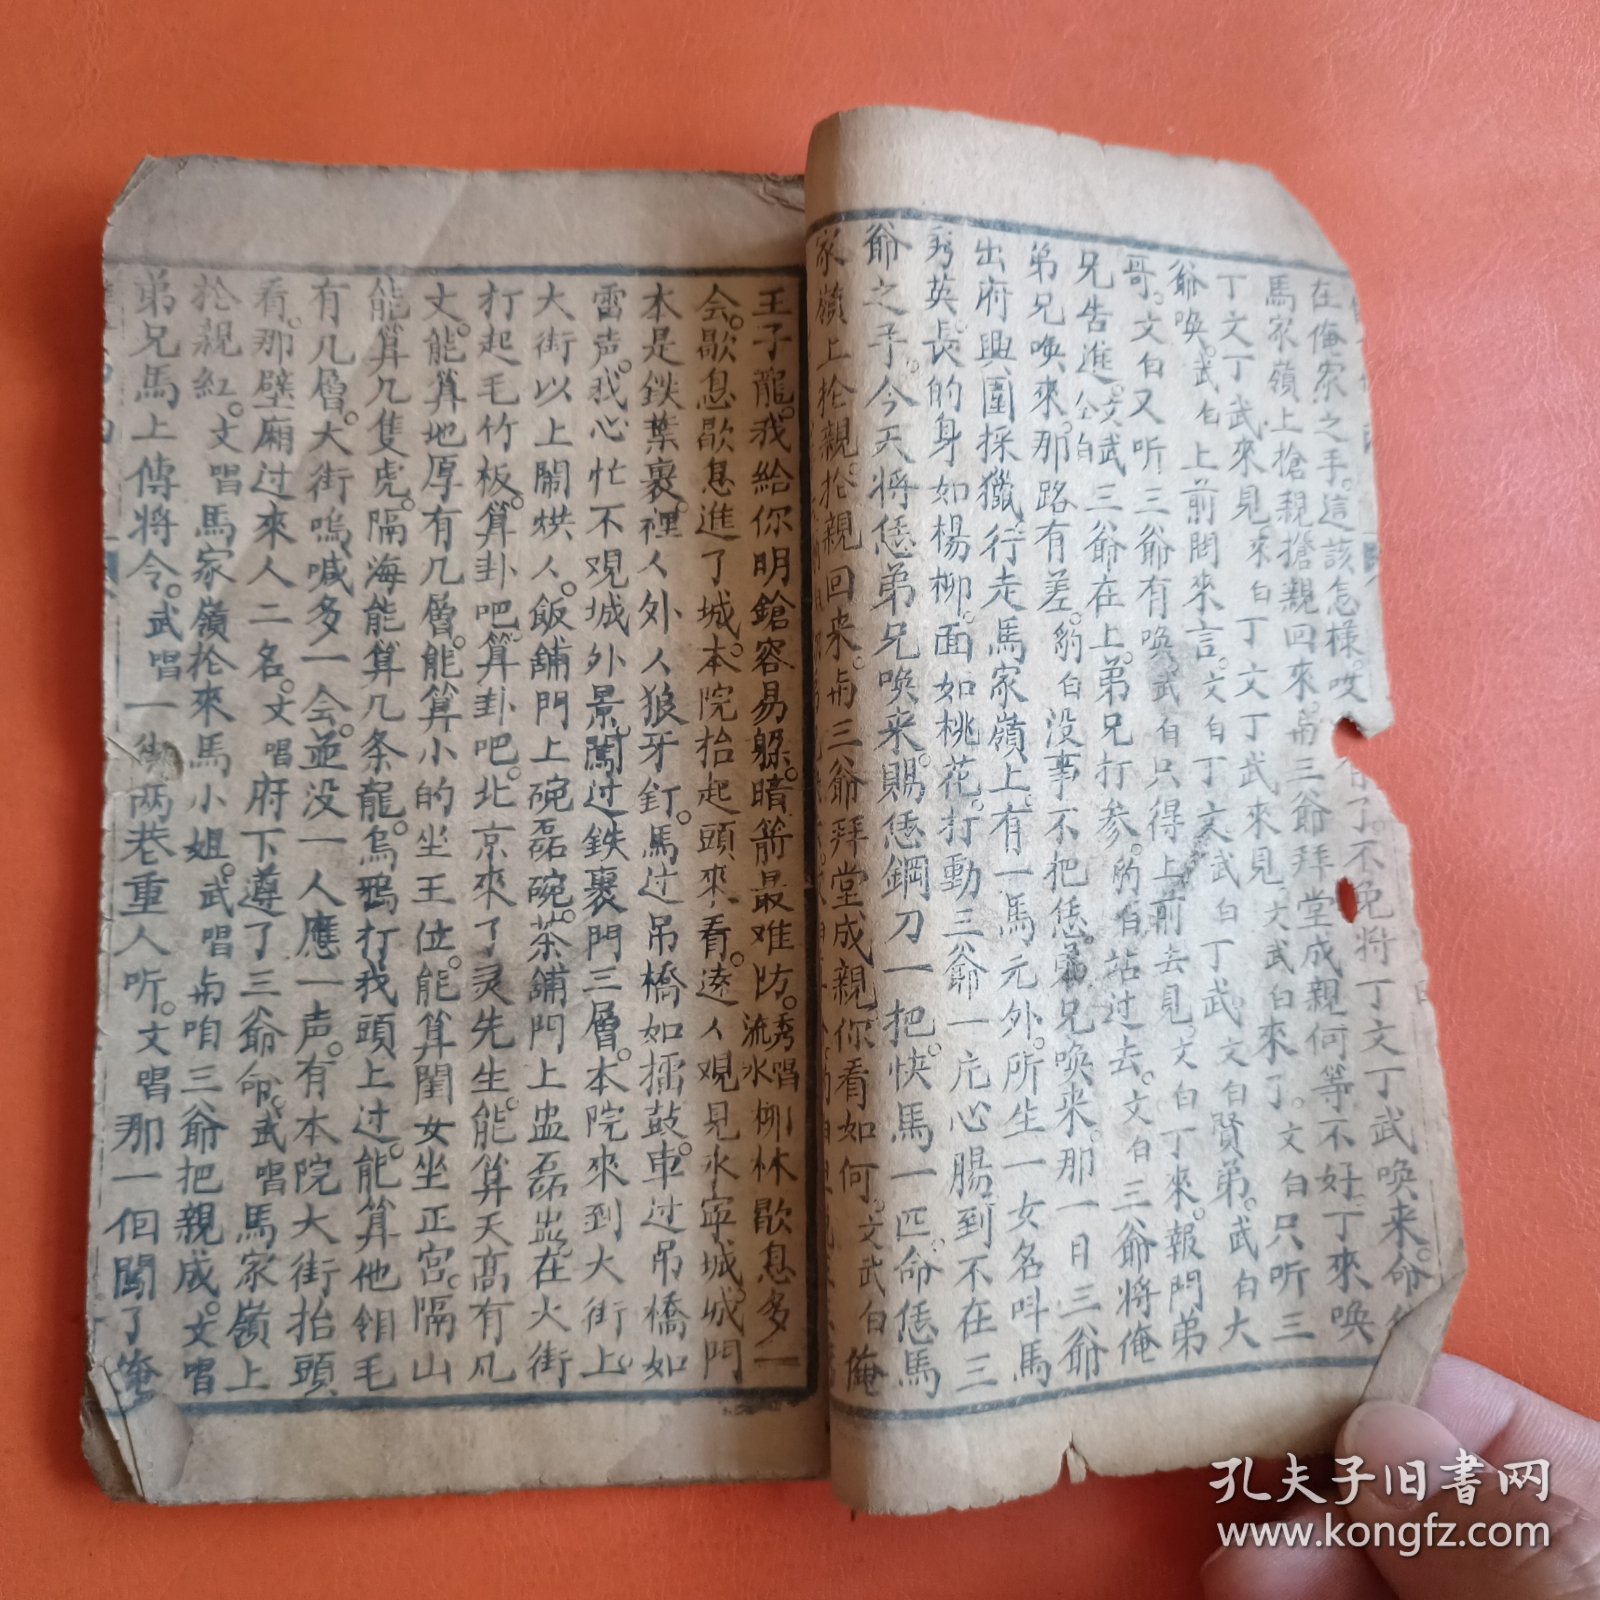 在俺家之手。這該怎樣。哎
了。不免將丁文丁武唤来。命
馬家嶺上搶親搶親回來。与三爺拜堂成親何等不好。丁來唤
丁文丁武來見。來白丁文丁武來見文武白來了。文白只听三
爺唤。武白上前問來言。文白丁文武白丁武。文白賢弟。武白大
哥。文白又听三爺有唤武白只得上前去見。文白丁來。報門弟
兄告進。文武三爺在上。弟兄打参。豹白站过去。文白三爺將俺
弟兄唤來。那路有差。豹白没事不把恁弟兄唤来。那一日三爺
出府與圍採獵。行走馬家嶺上。有一馬元外。所生一女名叫馬
秀英。長的身如楊柳。面如桃花。打動三爺一片心腸。到不在三
爺之手。今天將恁弟兄唤来。賜恁鋼刀一把。快馬一匹。命恁馬
家嶺上抡親。抡親回来。与三爺拜堂成親你看如何。文武白俺
王子龍。我給你明鎗容易躲。暗箭最难防。秀唱流水柳林歇息多一
会。歇息歇息進了城。本院抬起頭來看。遠人观見永寧城。城門
本是鉄葉裹。裡人外人狼牙釘。馬过吊橋如擂鼓。車过吊橋如
雷声。我心忙不观城外景。闖过鉄裹門三層。本院來到大街上。
大街以上閙烘人。飯舖門上碗磊碗。茶舖門上盅磊盅。在大街
打起毛竹板。算卦吧。算卦吧。北京來了灵先生。能算天高有几
丈。能算地厚有几層。能算小的坐王位。能算閨女坐正宫。隔山
能算几隻虎。隔海能算几条龍。烏鴉打我頭上过。能算他翎毛
有几層。大街嗚喊多一会。並没一人應一声。有本院大街抬頭
看。那壁廂过來人二名。文唱府下遵了三爺命。武唱馬家嶺上
抡親紅。文唱馬家嶺抡來馬小姐。武唱与咱三爺把親成。文唱
弟兄馬上傳將令。武唱一街两巷重人听。文唱那一個闖了俺
孔夫子旧書网
www.kongfz.com